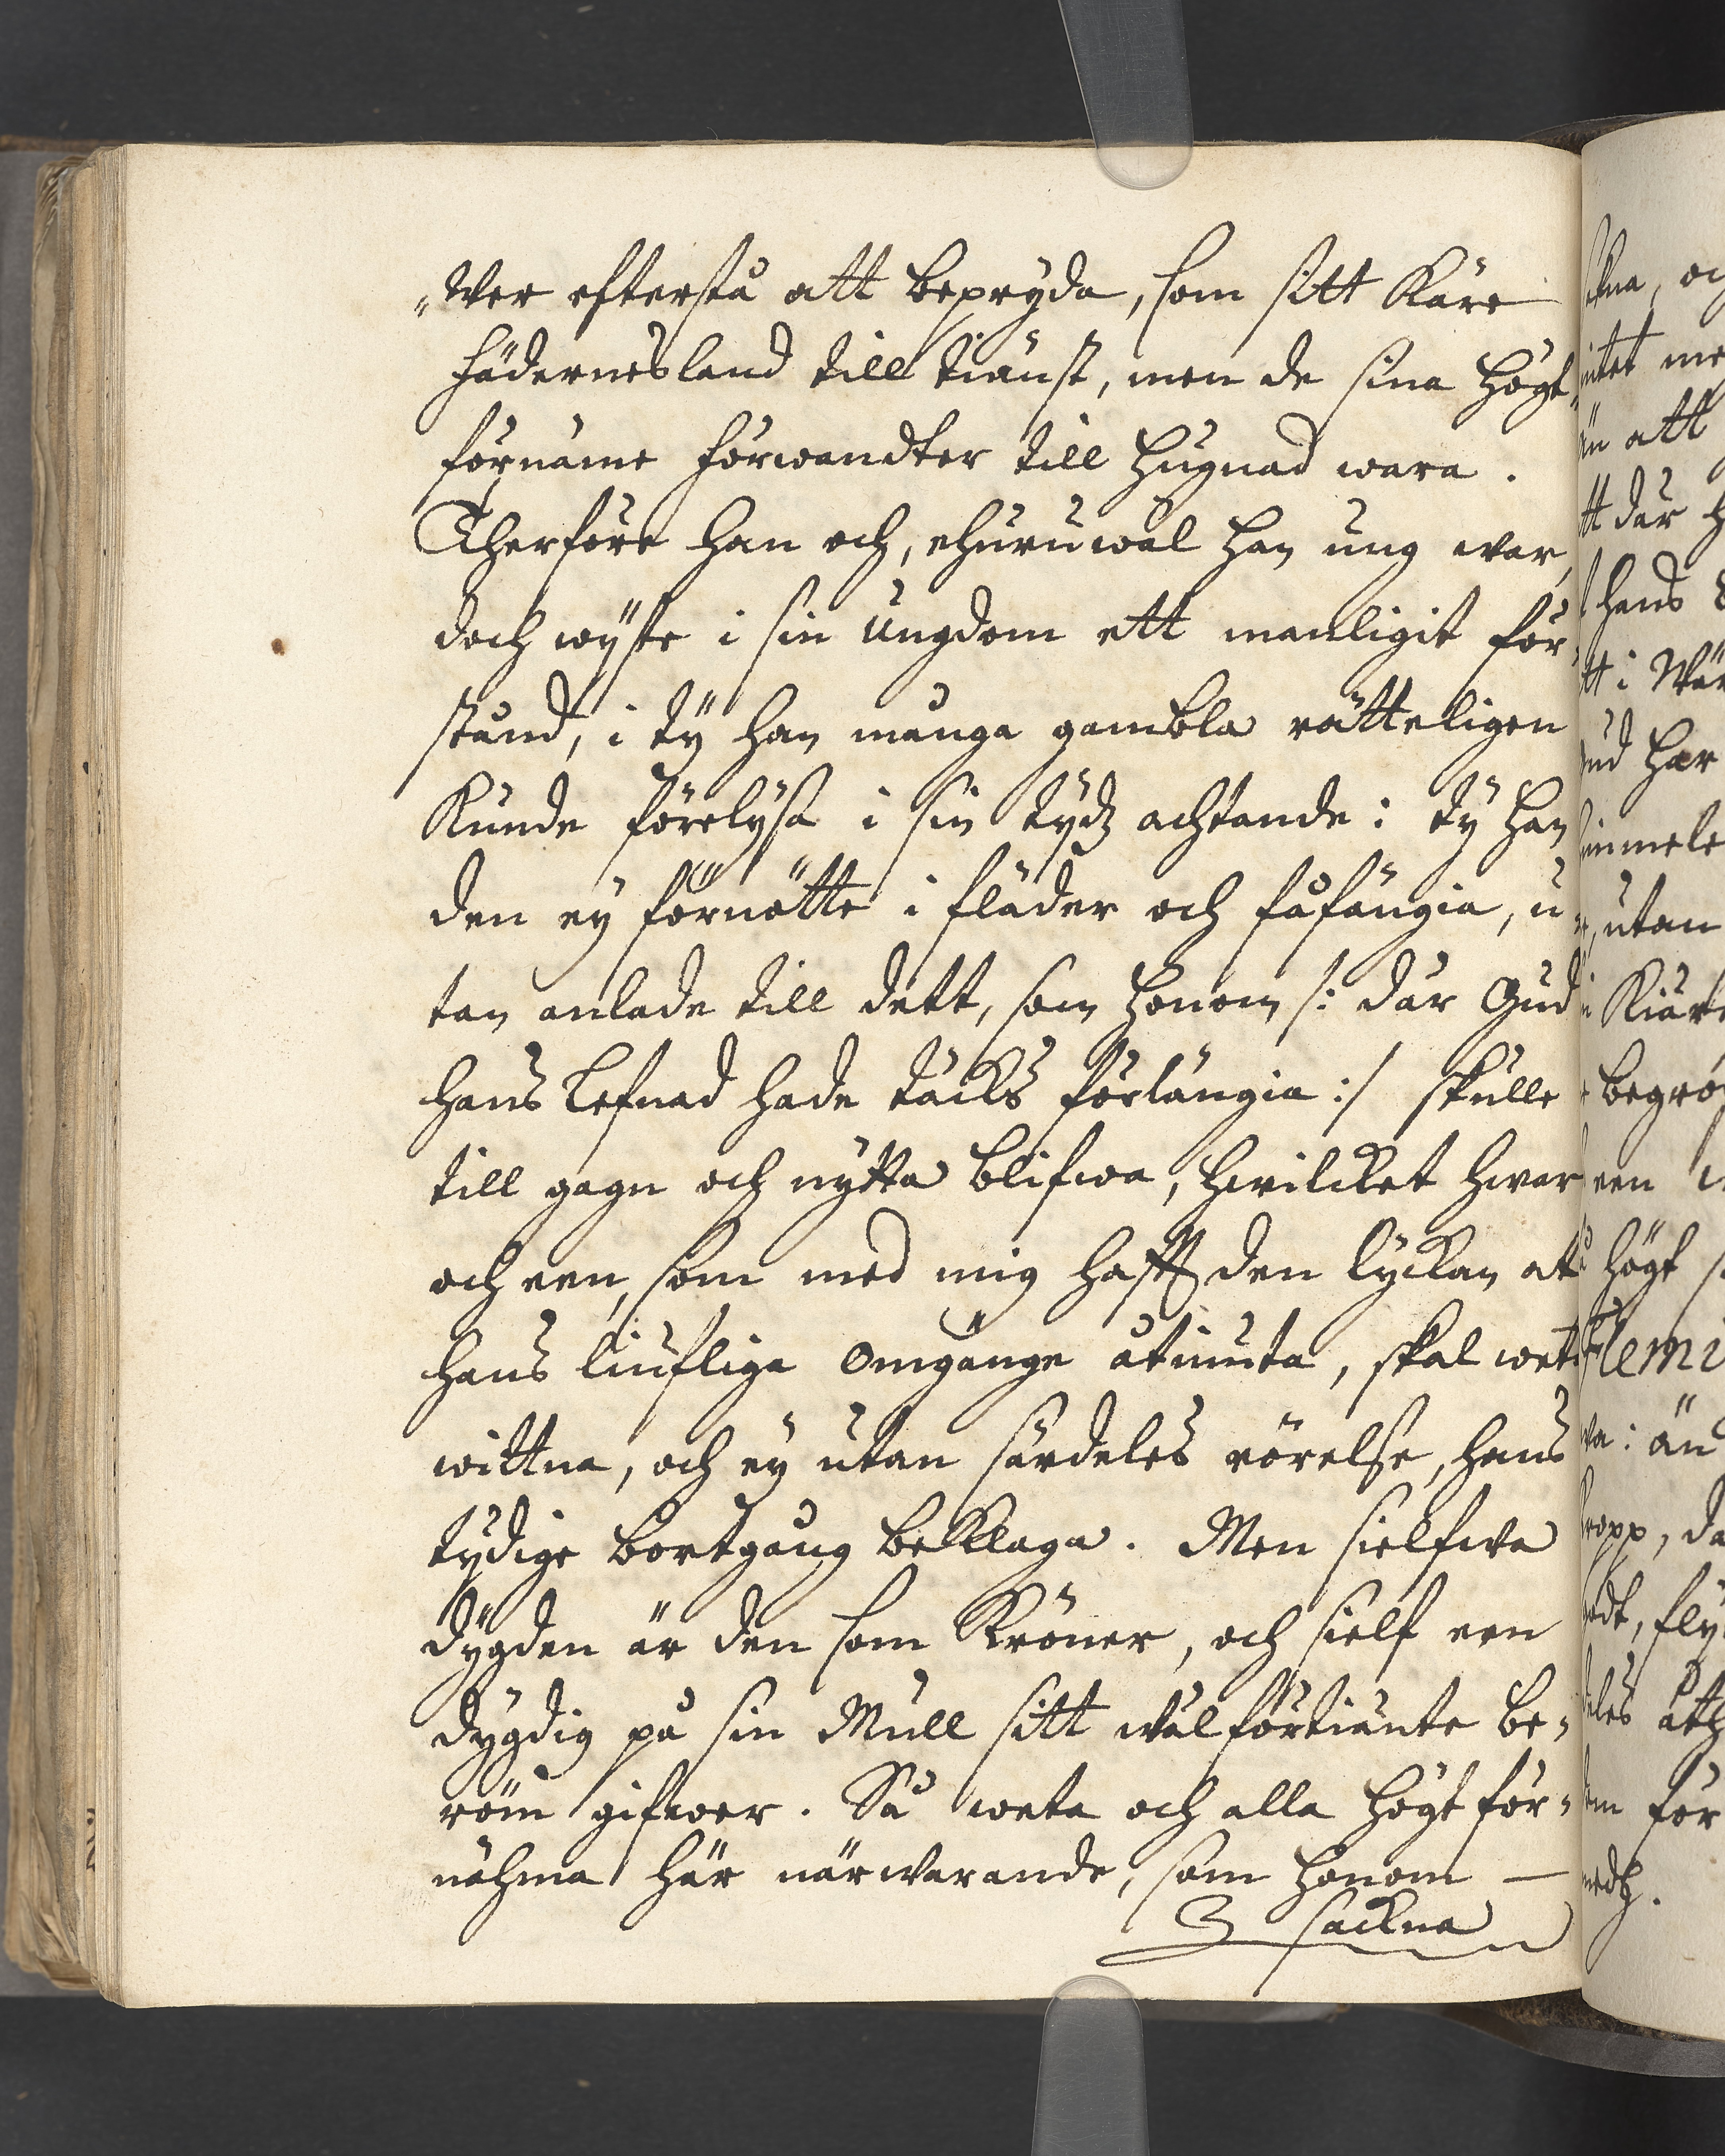 „wer efterstå att bepryda, som sitt Käre
fädernesland till tiänst, men de sina högt„
förnäme förwandter till hugnad wara.
Therföre han och, ehuruwäl han ung war,
doch wyste i sin ungdom ett manligit för„
stånd, i ty han många gambla rätteligen
Kunde förelysa i sin tydz achtande: ty han
den ey förnötte i flärder och fåfängia, u„
tan anlade till dett, som honom /: där Gud
hans lefnad hade täcks förlängia :/ skulle
till gagn och nytta blifwa, hwilcket hwar
och een, som med mig hafft den lyckan at
hans liufliga omgänge åtniuta, skal wet
wittna, och ey utan särdeles rörelse, hans
tydige bortgång beklaga. Men sielfwa
dygden är den som Kröner, och sielf een
dygdig på sin Mull sitt wälförtiänte be„
röm gifwer. Så weta och alla högt för„
nähma här närwarande, som honom —
sackna